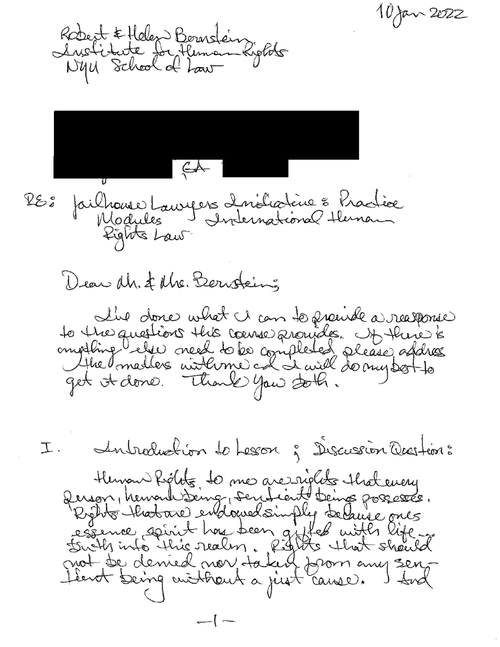 10 Jan 2022
Robert & Helen Bernstein
Institute for Human Rights
NYU School of Law
CA
RE: Jailhouse Lawyers Initiative & Practice
Modules, International Human
Rights Law
Dear Mr. & Mrs. Bernstein;
I've done what I can to provide a response
to the questions this course provides. If there is
anything else need to be completed please address
the matters with me and I will do my best to
get it done. Thank You Both.
I. Introduction to Lesson ; Discussion Question:
Human Rights, to me are rights that every
person, human being, sentient beings possesses.
Rights that are endowed simply because ones
essence, spirit has been gifted with life...
birth into this realm. Rights that should
not be denied nor taken from any sen-
tient being without a just cause. And
-1-